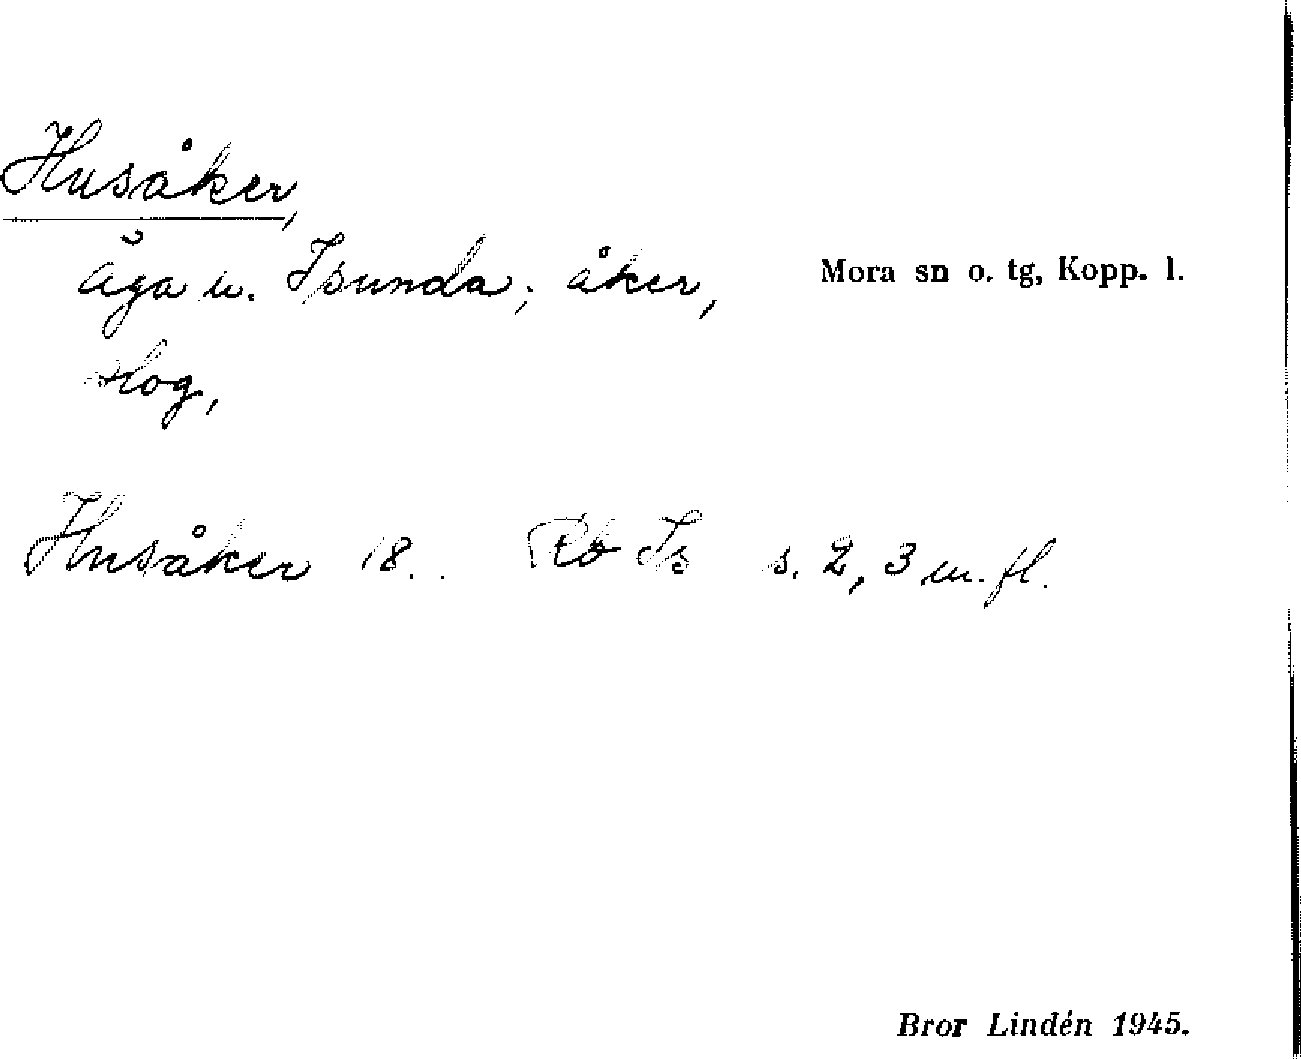 Husåker,
äga u. Isunda; åker,
Mora sn o. tg, Kopp. l.
slog,
Husåker 18.. Rb Is s. 2, 3 m. fl.
Bror Lindén 1945.